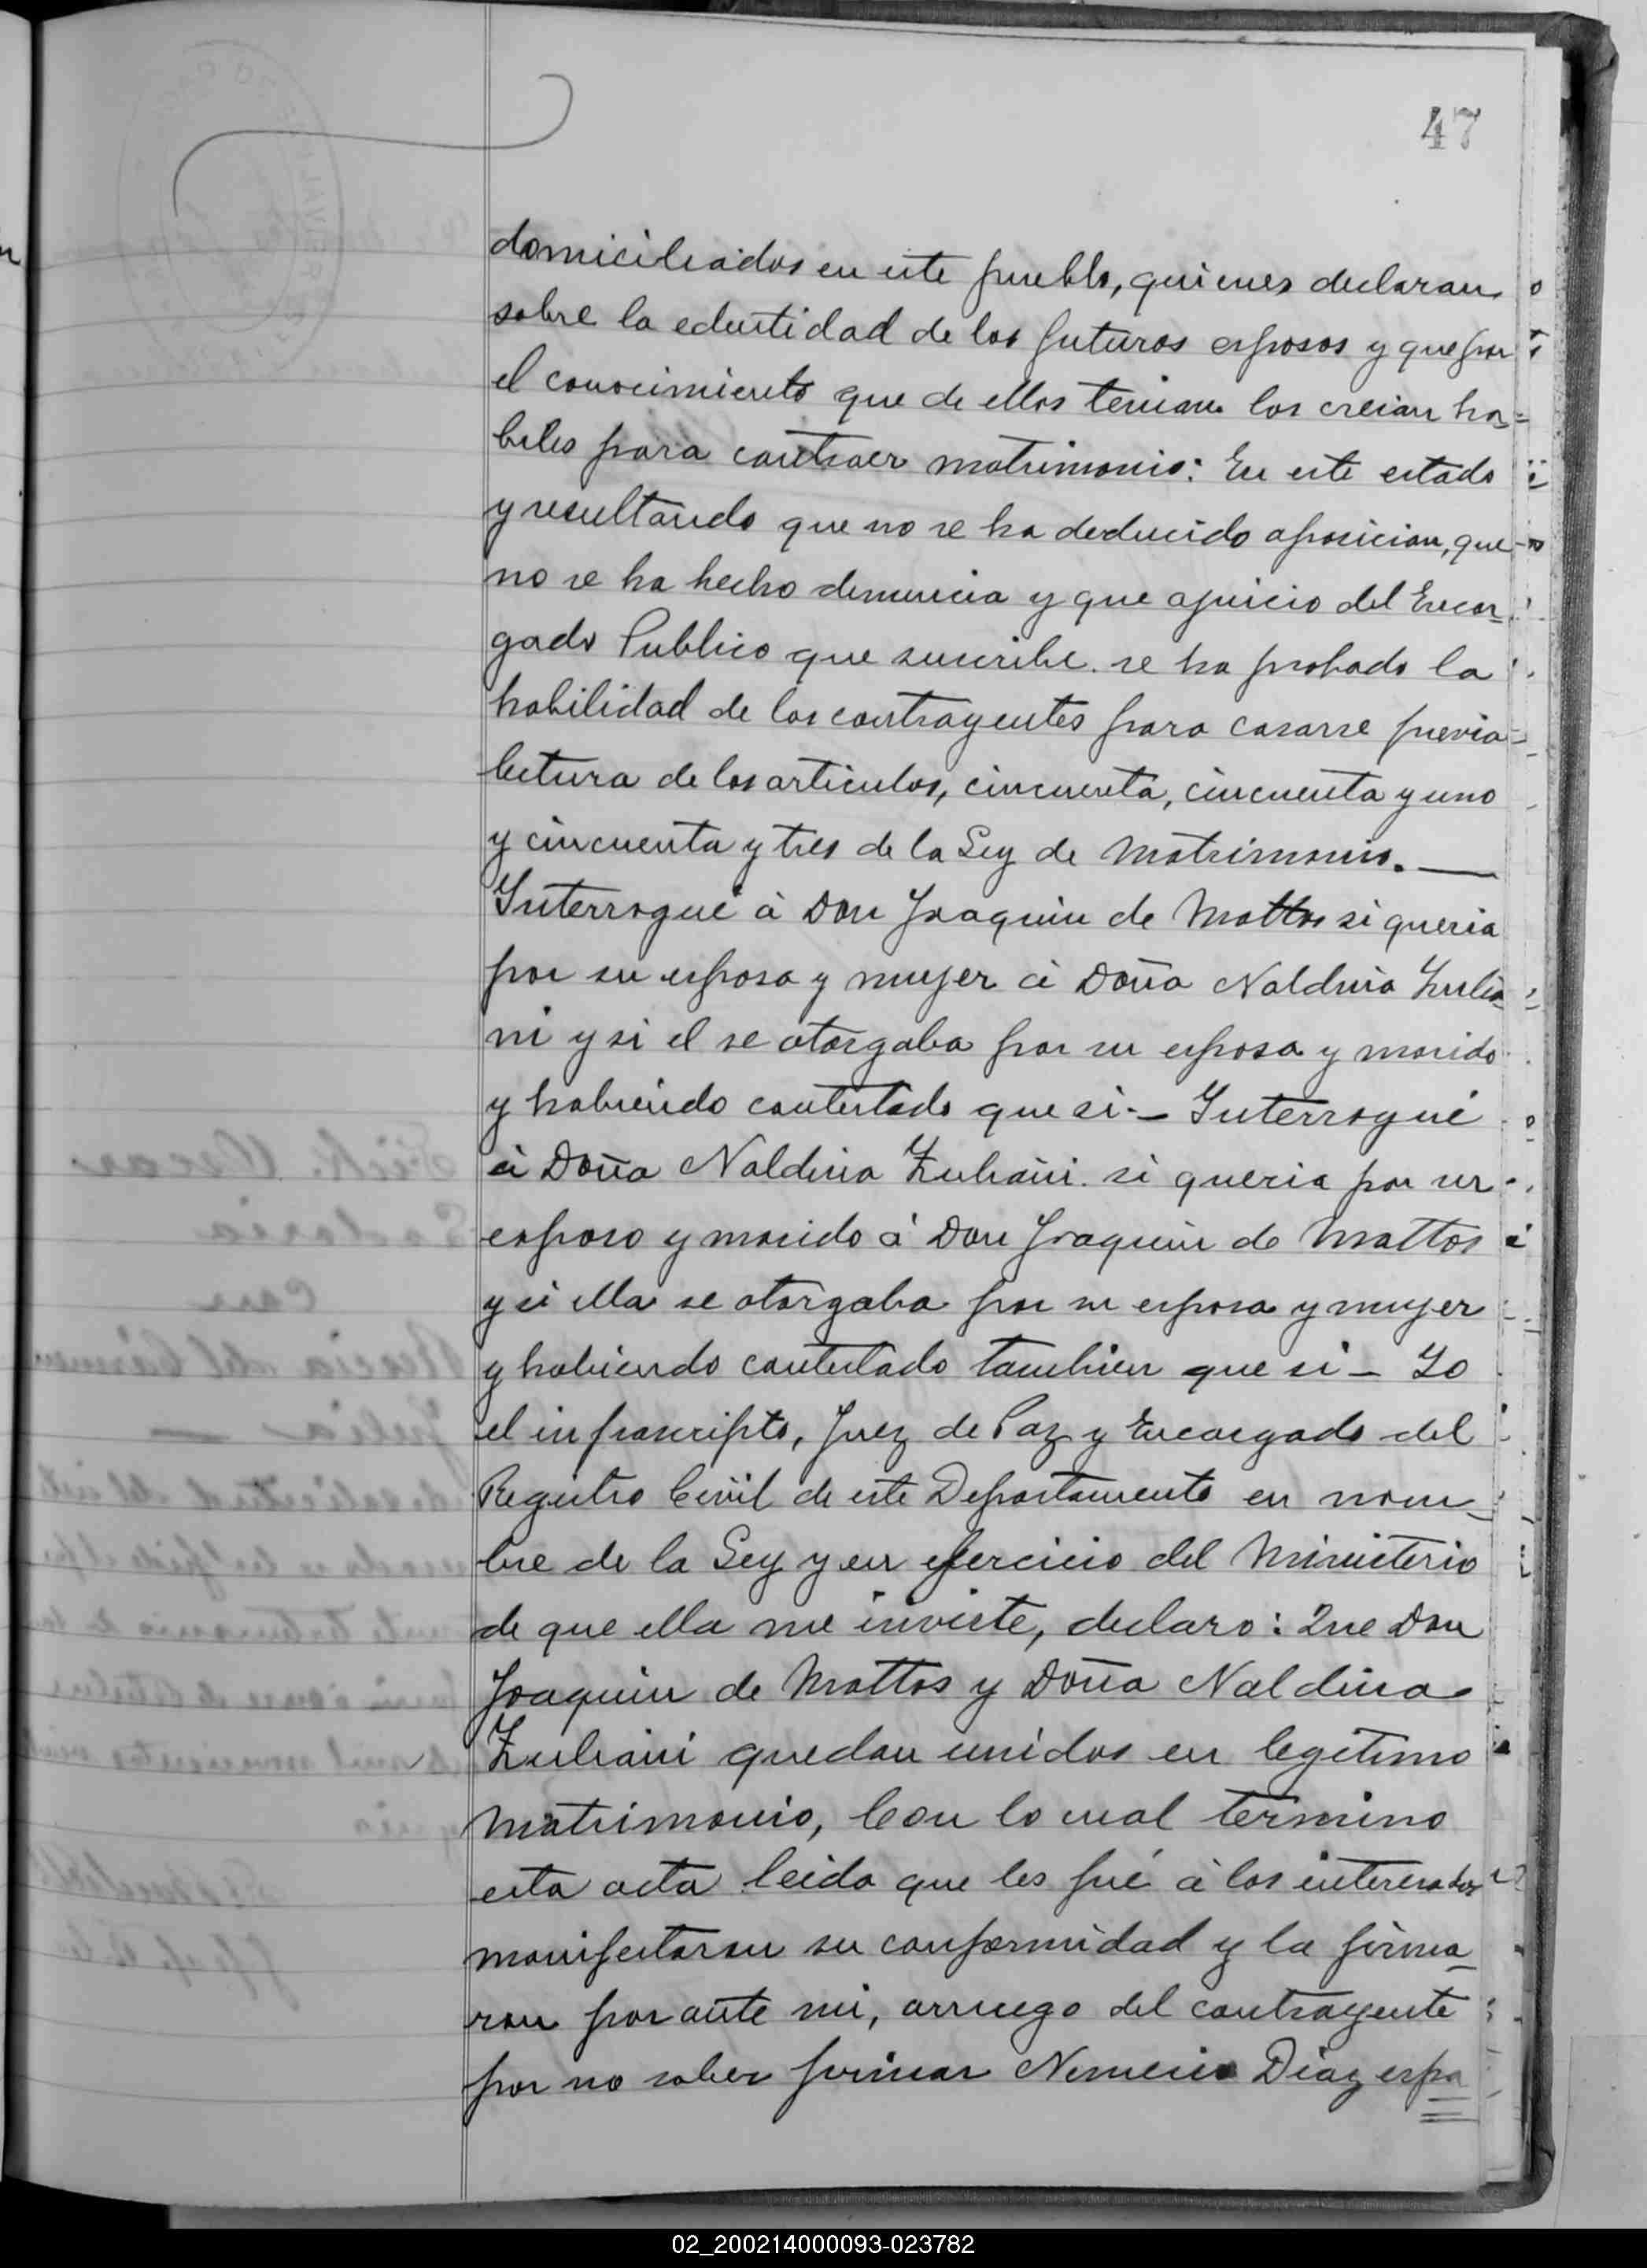 47
domiciliados en este pueblo, quienes declaran
sobre la edentidad de los futuros esposos y que por
el conocimiento que de ellos tenian los creian ha=
biles para contraer matrimonio: En este estado
y resultando que no se ha deducido oposicion, que
no se ha hecho denuncia y que ajuicio del Encar_
gado Publico que suscribe se ha probado la
habilidad de los contrayentes para casarse previa
lectura de los articulos, cincuenta, cincuenta y uno
y cincuenta y tres de la Ley de Matrimonio. —
Interrogué à Don Joaquin de Mattos si queria
por su esposa y mujer à Doña Naldina Zulia_
ni y si el se otorgaba por su esposo y marido
y habiendo contestado que si — Interrogué
à Doña Naldina Zuliani si queria por su
esposo y marido à Don Joaquin de Mattos
y si ella se otorgaba por su esposa y mujer
y habiendo contestado tambien que si — Yo
el infrascripto, Juez de Paz y Encargado del
Registro Civil de este Departamento en nom_
bre de la Ley y en ejercicio del Ministerio
de que ella me inviste, declaro: Que Don
Joaquin de Mattos y Doña Naldina
Zuliani quedan unidos en legitimo
Matrimonio, Con lo cual termino
esta acta leida que les fué à los interesados
manifestaron su conformidad y la firma_
ron por ante mi, arruego del contrayente
por no saber firmar Nemecio Diaz espa
02_200214000093-023782